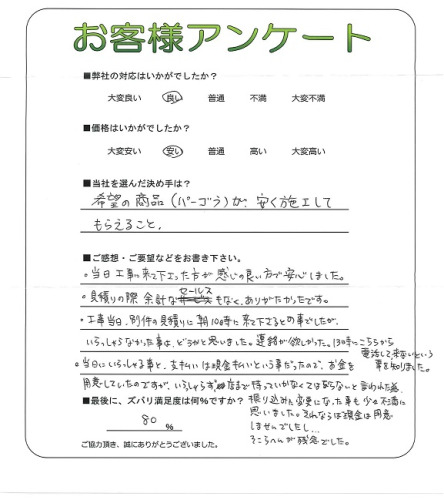 お客様アンケート
■弊社の対応はいかがでしたか？
大変良い 良い 普通 不満 大変不満
■価格はいかがでしたか？
大変安い 安い 普通 高い 大変高い
■当社を選んだ決め手は？
希望の商品（パーゴラ）が、安く施工して
もらえること。
■ご感想・ご要望などをお書き下さい。
・当日工事に来て下さった方が感じの良い方で安心しました。
・見積りの際 余計なセールスもなく、ありがたかったです。
・工事当日、別件の見積りに朝10時に来て下さるとの事でしたが、
いらっしゃらなかった事は、どうかと思いました。連絡が欲しかった。(13時にこちらから
電話して来ないという
事を知りました。
・当日にいらっしゃる事と、支払いは現金払いという事だったので、お金を
用意していたのですが、いらっしゃらず 店まで持っていかなくては ならないと言われた為、
振り込みに変更になった事も少々不満に
思いました。それならば現金は用意
しませんでしたし…
そこらへんが残念でした。
■最後に、ズバリ満足度は何％ですか？
80 %
ご協力頂き、誠にありがとうございました。